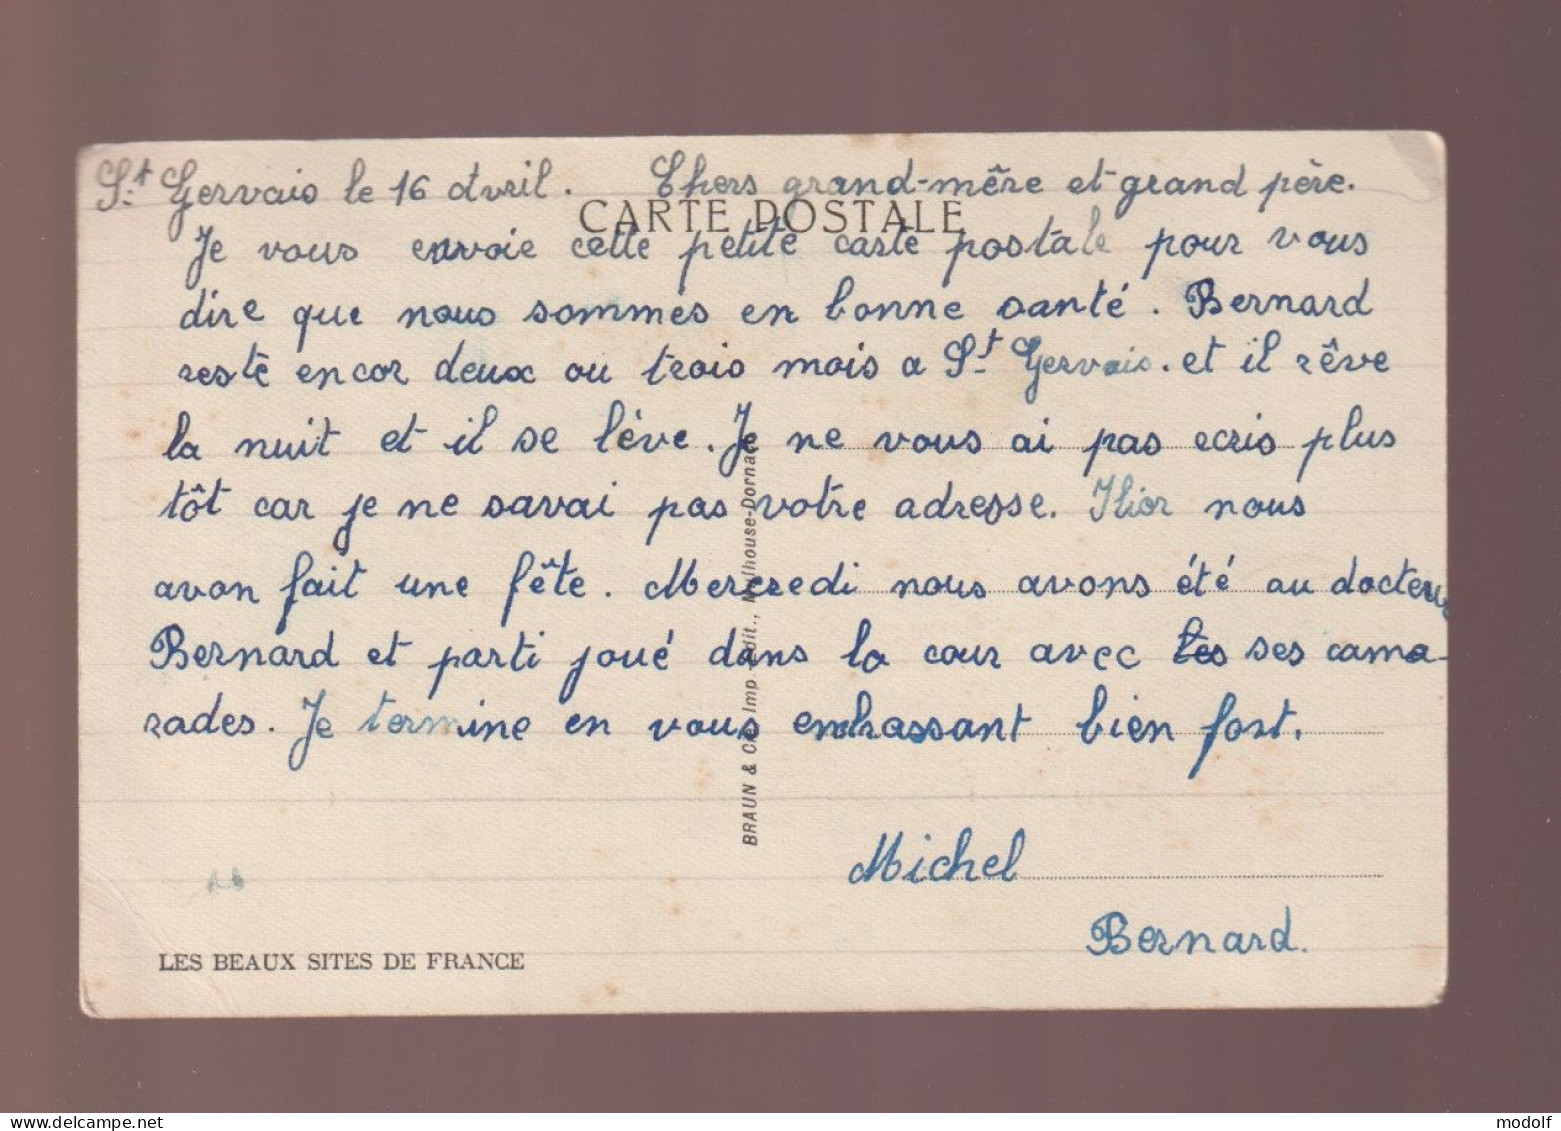 St Gervais le 16 avril. Chers grand-mêre et grand père.
CARTE POSTALE
Je vous envoie cette petite carte postale pour vous
dire que nous sommes en bonne santé. Bernard
reste encor deux ou trois mois a St Gervais. et il rêve
la nuit et il se lève. Je ne vous ai pas ecris plus
tôt car je ne savai pas votre adresse. Hier nous
avon fait une fête. Mercredi nous avons été au docteur
Bernard et parti joué dans la cour avec les ses cama-
rades. Je termine en vous embrassant bien fort.
Michel
Bernard.
BRAUN & Cie, Imp.-Edit., Mulhouse-Dornach
LES BEAUX SITES DE FRANCE
www.delcampe.net
modolf